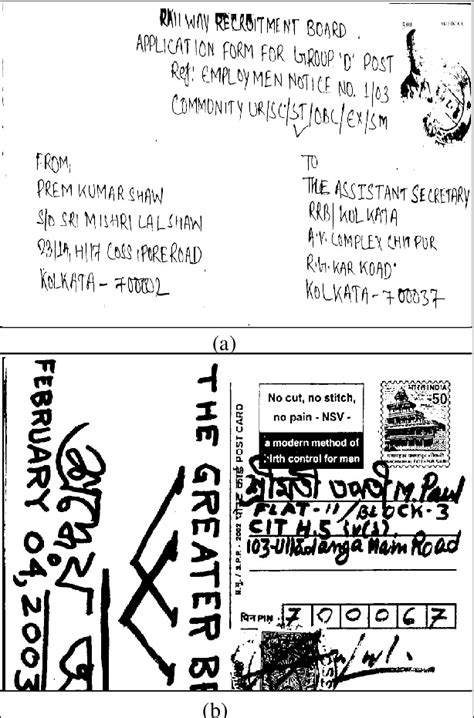 RAILWAY RECRUITMENT BOARD
APPLICATION FORM FOR GROUP 'D' POST
Ref: EMPLOYMEN NOTICE NO. 1/03
COMMONITY UR/SC/ST/OBC/EX/SM
FROM,
PREM KUMAR SHAW
S/O SRI MISHRI LAL SHAW
93/1A, H/17 COSSIPORE ROAD
KOLKATA - 700002
TO
THE ASSISTANT SECRETARY
RRB/KOLKATA
A.V. COMPLEX CHITPUR
R.G. KAR ROAD
KOLKATA - 700037
(a)
FEBRUARY 04, 2003
THE GREATER BE
2002 पोस्ट कार्ड POST CARD
No cut, no stitch,
no pain - NSV -
a modern method of
birth control for men
भारत INDIA
50
শ্রীমতী M. Paul
FLAT-11/BLOCK-3
CIT H.S
103-Ultadanga Main Road
पिन PIN 700067
(b)